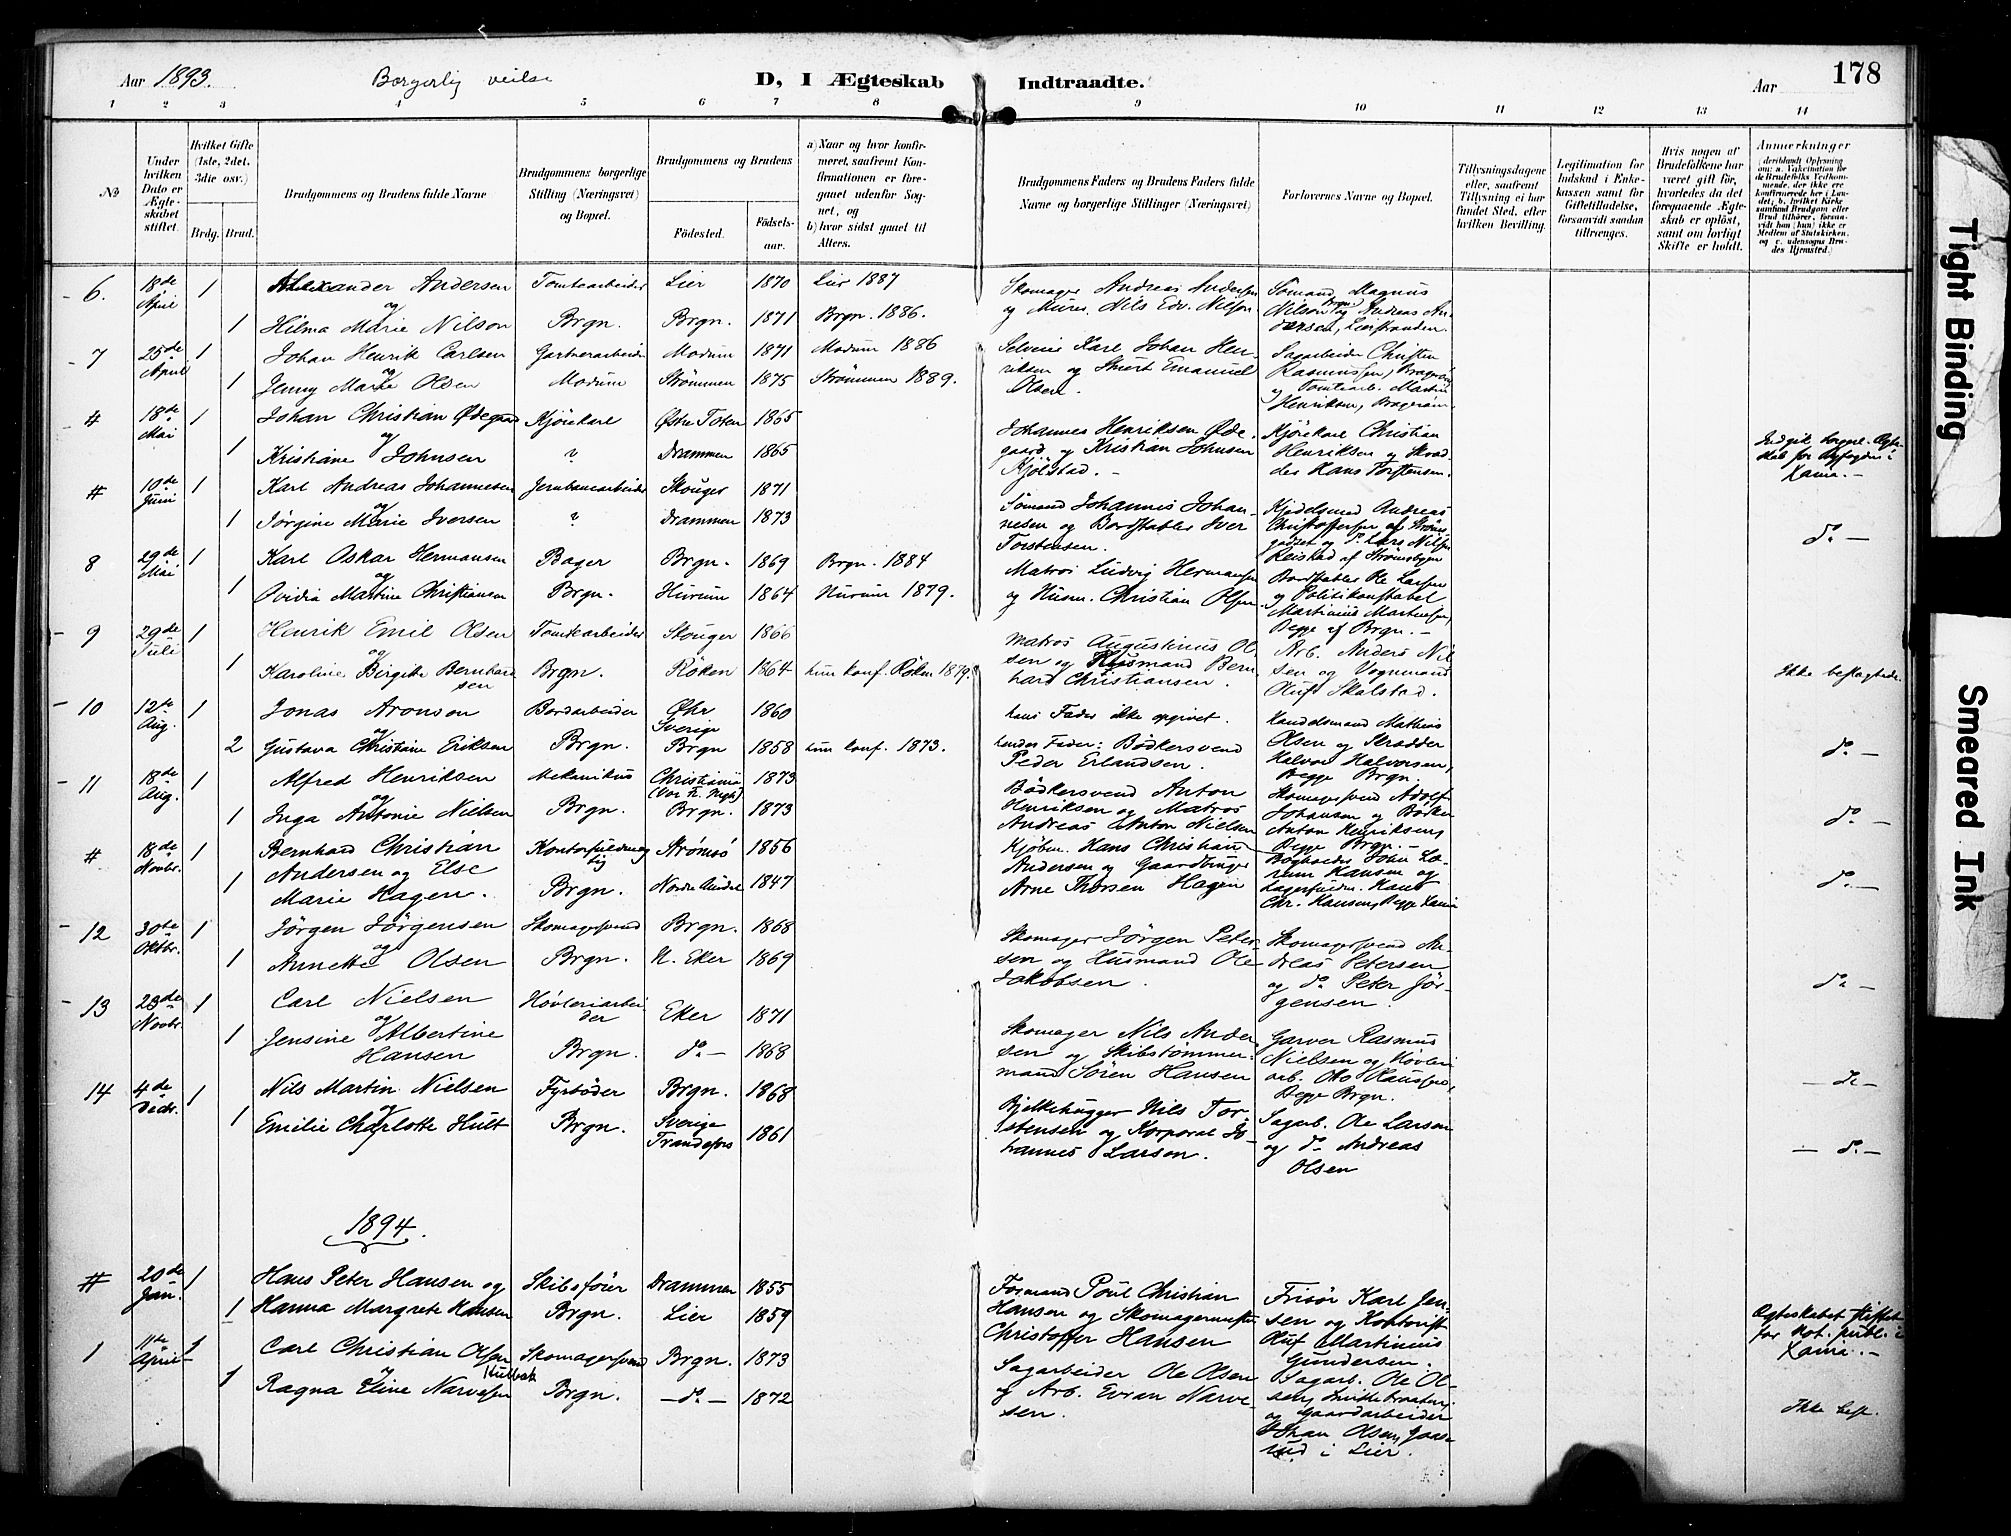 Aar 1893.
Borgerlig veilse
D, I Ægteskab Indtraadte.
Aar
178
1 2 3 4 5 6 7 8 9 10 11 12 13 14
№
Under hvilken Dato er Ægteskabet stiftet.
Hvilket Gifte (1ste, 2det, 3die osv.)
Brdg. Brud.
Brudgommens og Brudens fulde Navne
Brudgommens borgerlige Stilling (Næringsvei) og Bopæl.
Brudgommens og Brudens
Födested. Födselsaar.
a) Naar og hvor konfirmeret, saafremt Konfirmationen er foregaaet udenfor Sognet, og
b) hvor sidst gaaet til Alters.
Brudgommens Faders og Brudens Faders fulde Navne og borgerlige Stillinger (Næringsvei)
Forlovernes Navne og Bopæl.
Tillysningsdagene eller, saafremt Tillysning ei har fundet Sted, efter hvilken Bevilling.
Legitimation for Indskud i Enkekassen samt for Giftetilladelse, forsaavidt saadan tiltrænges.
Hvis nogen af Brudefolkene har været gift før, hvorledes da det foregaaende Ægteskab er oplöst, samt om lovligt Skifte er holdt.
Anmærkninger
6. 18de April 1 Alexander Andersen Tomtearbeider Lier 1870 Lier 1887
og
1 Hilma Marie Nilson Brgn. Brgn. 1871 Brgn. 1886.
Skomager Andreas Andersen
og Murs. Nils Edv. Nilson
Sömand Magnus
Nilson Brgn. og Andreas An-
dersen, Lierstranden.
7 25de April 1 Johan Henrik Carlsen Gartnerarbeider Modum 1871 Modum 1886
og
1 Jenny Marie Olsen Modum Strømmen 1875 Strømmen 1889.
Selveier Karl Johan Hen-
riksen og Stuert Emanuel
Olsen.
Sagarbeider Christen
Rasmussen, Bragerøen
og Tomtearb. Martin
Henriksen, Bragerøen
# 18de Mai 1 Johan Christian Ødegaard Kjørekarl Østre Toten 1865
og
1 Kristiane Johnsen ? Drammen 1865
Johannes Henriksen Øde-
gaard og Kristian Johnsen
Kjølstad. -
Kjørekarl Christian
Henriksen og Skræd-
der Hans Torstensen.
Indgik borgerl. Ægte-
skab for Byfogden i
Xania. -
# 10de Juni 1 Karl Andreas Johannesen Jernbanearbeider Skouger 1871
og
1 Jørgine Marie Iversen ? Drammen 1873
Sömand Johannes Johan-
nesen og Bordstabler Iver
Torstensen.
Kjedelsmed Andreas
Christoffersen af Strøms-
godset og P. Lars Nilsen
Reistad af Strømsbyen
do -
8 29de Mai 1 Karl Oskar Hermansen Bager Brgn. 1869 Brgn. 1884
og
1 Ovidia Martine Christiansen Brgn. Hurum 1864 Hurum 1879.
Matros Ludvig Hermansen
og Husm. Christian Olsen
Bordstabler Ole Larsen
og Politikonstabel
Martinius Martinsen,
Begge af Brgn. -
9 29de Juli 1 Henrik Emil Olsen Tomtearbeider Skouger 1866
og
1 Karoline Birgitte Bernhard-
sen Brgn. Røken 1864 hun konf. Røken 1879.
Matros Augustinus Ol-
sen og Husmand Bern-
hard Christiansen.
Arb. Anders Nil-
sen og Vognmand
Oluf Skalstad.
Ikke beslægtede.
10 12te Aug. 1 Jonas Aronson Bordarbeider Øhr Sverige 1860
og
2 Gustava Christine Eriksen Brgn. Brgn 1858 hun konf. 1873.
hans Fader ikke opgivet.
hendes Fader: Bødkersvend
Peder Erlandsen.
Handelsmand Mathias
Olsen og Skrædder
Halvor Halvorsen,
Begge Brgn.
do -
11 18de Aug. 1 Alfred Henriksen Mekanikus Christiania 1873
og
1 Inga Antonie Nielsen Brgn. Brgn. 1873
Bødkersvend Anton
Henriksen og Matros
Andreas Anton Nielsen
Skomagersvend Adolf
Johansen og Bødker
Anton Henriksen,
Begge Brgn. -
do -
# 18de Novbr. 1 Bernhard Christian Kontorfuldmægtig Strømsø 1856
Andersen og Else
1 Marie Hagen. Brgn. Nordre Aurdal 1847
Kjøbm. Hans Christian
Andersen og Gaardbruger
Arne Thorsen Hagen
Bogholder John Lo-
rum Hansen og
Lagerfuldm. Hans
Chr. Hansen, Begge Xania
do -
12 30te Oktbr. 1 Jörgen Jörgensen Skomagersvend Brgn. 1868
og
1 Annette Olsen Brgn. N. Eker 1869
Skomager Jörgen Peter-
sen og Husmand Ole
Jakobsen.
Skomagersvend An-
dreas Petersen
og do Peter Jør-
gensen.
do -
13 23de Novbr. 1 Carl Nielsen Høvleriarbei-
der Eker 1871
og
1 Jensine Albertine
Hansen Brgn. do - 1868
Skomager Nils Ander-
sen og Skibstømmer-
mand Sören Hansen
Garver Rasmus
Nielsen og Høvleri
arb. Otto Klausen,
Begge Brgn.
- do -
14 4de Decbr. 1 Nils Martin Nielsen Fyrbøder Brgn. 1868
og
1 Emilie Charlotte Hult Brgn. Sverige Trandefors 1861
Bjelkehugger Nils Tor-
stensen og Korporal Jo-
hannes Larson.
Sagarb. Ole Larsen
og do Andreas
Olsen
- do -
1894.
# 20de Jan. 1 Hans Peter Hansen og Skibsfører Drammen 1855
1 Hanna Margrete Hansen Brgn. Lier 1859
Formand Poul Christian
Hansen og Skomagermester
Christoffer Hansen
Frisør Karl Jen-
sen og Kontorist
Oluf Martinius
Gundersen.
Ægteskabet stiftet
for Not. publ. i
Xania. -
1 11te April 1 Carl Christian Olsen Skomagersvend Brgn. 1873
og Kulbæk
1 Ragna Eline Narvesen Brgn. - do - 1872
Sagarbeider Ole Olsen
og Arb. Evran Narve-
sen.
Sagarb. Ole Ol-
sen,
og Gaardarbeider
Johan Olsen,
i Lier.
Ikke besl.
Tight Binding
Smeared Ink